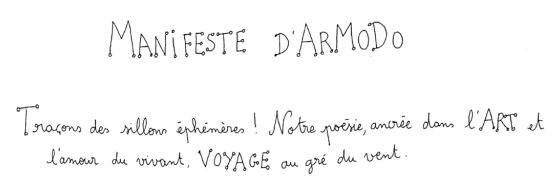 MANiFESTE D'ARMODO
Traçons des sillons éphémères ! Notre poésie, ancrée dans l'ART et
l'amour du vivant, VOYAGE au gré du vent.